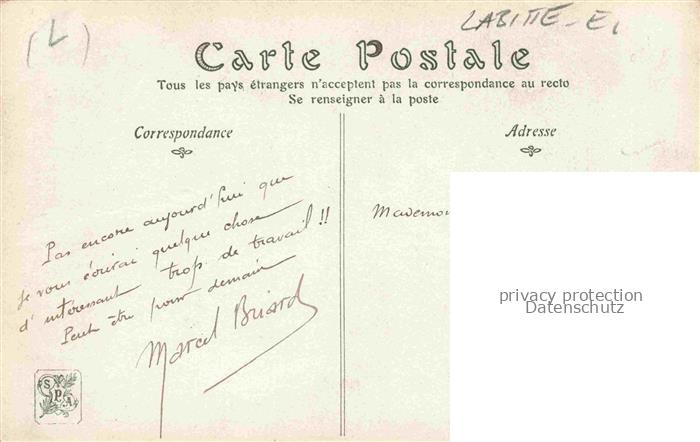 (L)
LABITTE - E,
Carte Postale
Tous les pays étrangers n'acceptent pas la correspondance au recto
Se renseigner à la poste
Correspondance
Adresse
Pas encore aujourd'hui que
je vous écrirai quelque chose
d'intéressant trop de travail !!
Peut être pour demain
Marcel Briard
Mademoi
privacy protection
Datenschutz
SPA